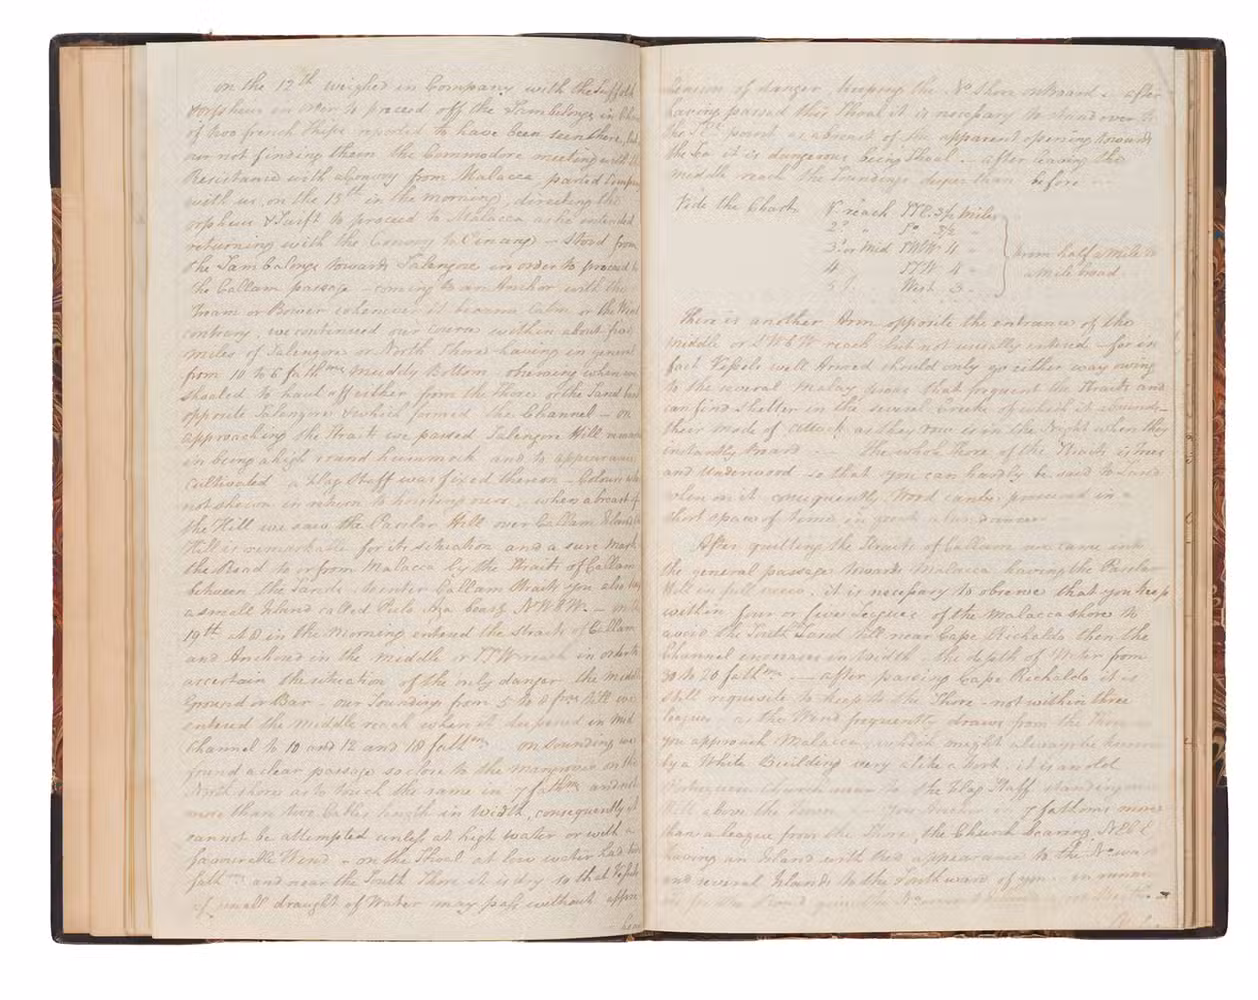 on the 12th weighed in Company with the Suffolk
& Orpheus in order to proceed off the Sambelongs in
of two french Ships reported to have been seen there, but
nor not finding them the Commodore meeting with the
Resistance with a Convoy from Malacca parted Company
with us, on the 15th in the morning, directing the
Orpheus & Swift to proceed to Malacca as he intended
returning with the Convoy to Penang - stood from
the Sambelongs towards Salengore in order to proceed
the Callam passage - coming to an Anchor with the
Stream or Bower whenever it became Calm or the Wind
contrary, we continued our course within about four
miles of Salengore or North Shore having in general
from 10 to 6 fathms Muddy Bottom - observing when we
shoaled to haul off either from the Shore or the Sand
opposite Salengore & which formed the Channel - on
approaching the Straits we passed Salengore Hill
in being a high round hummock and to appearance
cultivated a Flag Staff was fixed thereon - Colours
not shown in return to hoisting ours - when abreast of
the Hill we saw the Parelar Hill over Callam Island
Hill is remarkable for its situation and a sure Mark
the Road to or from Malacca by the Straits of Callam
between the Sands. to enter Callam Straits you also
a small Island called Pulo Aga bears NWBW. - on the
19th at 8 in the Morning entered the Straits of Callam
and Anchored in the middle or SSW reach in order to
ascertain the situation of the only danger the Middle
Ground or Bar - our Soundings from 5 to 8 fms till we
entered the Middle reach when it deepened in Mid
Channel to 10 and 12 and 18 fathms on sounding we
found a clear passage so close to the Mangroves on the
North shore as to touch the same in 7 fathms and not
more than two Cables length in Width, consequently it
cannot be attempted unless at high water or with a
favourable Wind - on the Shoal at low water had
fathms and near the South Shore it is dry so that Vessels
of small draught of Water may pass without appre
hension of danger, keeping the No. Shore onboard - after
having passed this Shoal it is necessary to stand over to
the point, as abreast of the apparent opening towards
the Sea it is dangerous being Shoal - after leaving the
middle reach the Soundings deeper than before
Vide the Chart 1st reach SSE. 3½ Miles
2d " So. 3½ "
3d or Mid SWW 4 "
4 " SSW 4 "
5 " West 3 "
from half a Mile to
a mile broad
There is another Arm opposite the entrance of the
middle or SWbW reach but not usually entered - for in
fact Vessels well Armed should only go either way owing
to the several Malay prows that frequent the Straits and
can find shelter in the several Creeks of which it abounds -
their mode of attack as they row is in the Night when they
instantly board - the whole Shore of the Straits is Trees
and Underwood - so that you can hardly be said to Land
when on it consequently Wood can be procured in a
short space of time in great abundance
After quitting the Straits of Callam we came into
the general passage towards Malacca having the Parelar
Hill in full view, it is necessary to observe that you keep
within four or five Leagues of the Malacca shore to
avoid the South Sand till near Cape Richaldo then the
Channel increases in Width - the depth of Water from
30 to 20 fathms - after passing Cape Richaldo it is
still requisite to keep to the Shore - not within three
leagues - as the Wind frequently draws from the Shore
you approach Malacca, which might always be known
by a White Building very alike a Fort. it is an old
Portuguese Church near to the Flag Staff standing on a
Hill above the Town you Anchor in 7 fathoms more
than a league from the Shore, the Church bearing NEbE
having an Island with Trees appearance to the No.
and several Islands to the Southward of you